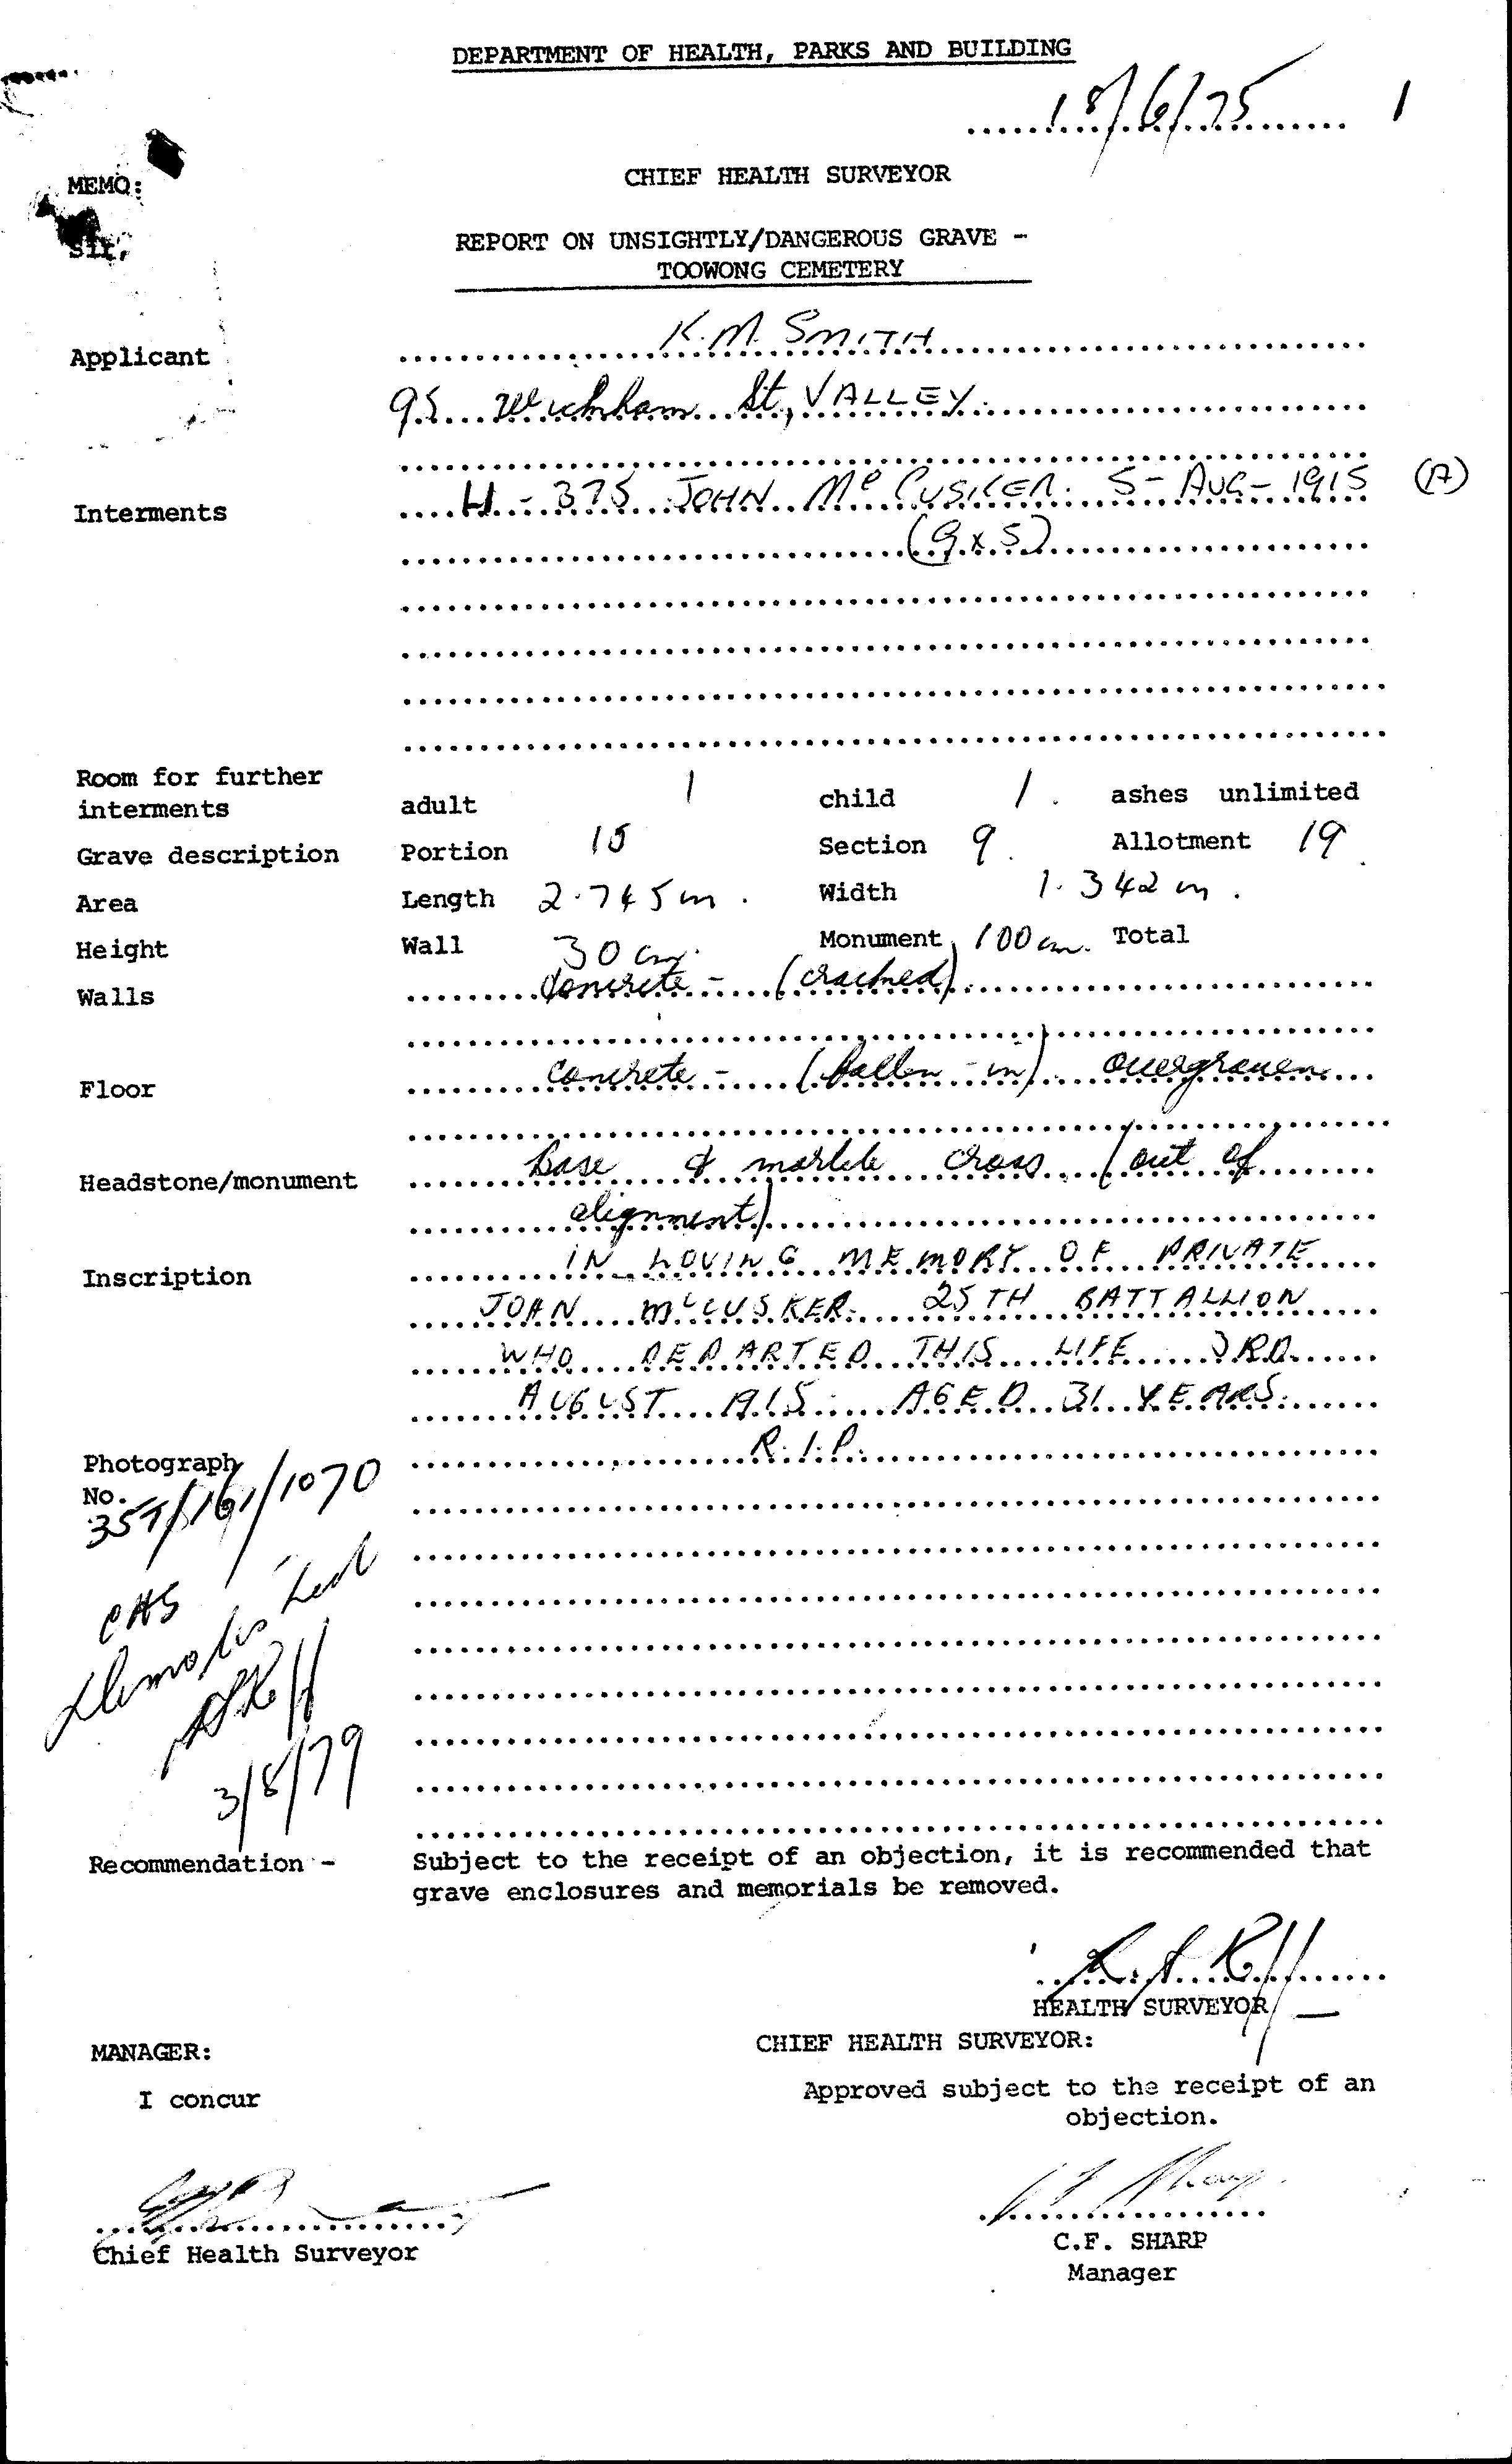 DEPARTMENT OF HEALTH, PARKS AND BUILDING
18/6/75 1
MEMO:
CHIEF HEALTH SURVEYOR
Sir,
REPORT ON UNSIGHTLY/DANGEROUS GRAVE -
TOOWONG CEMETERY
Applicant K.M. SMITH
95 Wickham St, VALLEY.
Interments H - 375 JOHN McCUSKER. 5 - AUG - 1915 (A)
(9 x 5)
Room for further
interments adult 1 child 1. ashes unlimited
Grave description Portion 10 Section 9. Allotment 19
Area Length 2.745m. Width 1.342m.
Height Wall 30cm. Monument 100cm. Total
Walls Concrete - (cracked)
Floor Concrete - (fallen-in) overgrown
Headstone/monument base & marble cross (out of
alignment)
Inscription IN LOVING MEMORY OF PRIVATE
JOHN McCUSKER. 25TH BATTALLION
WHO DEPARTED THIS LIFE 3RD
AUGUST 1915. AGED 31 YEARS.
R.I.P.
Photograph
No.
357/161/1070
CHS
3/8/79
Recommendation - Subject to the receipt of an objection, it is recommended that
grave enclosures and memorials be removed.
HEALTH SURVEYOR
MANAGER: CHIEF HEALTH SURVEYOR:
I concur Approved subject to the receipt of an
objection.
Chief Health Surveyor
C.F. SHARP
Manager